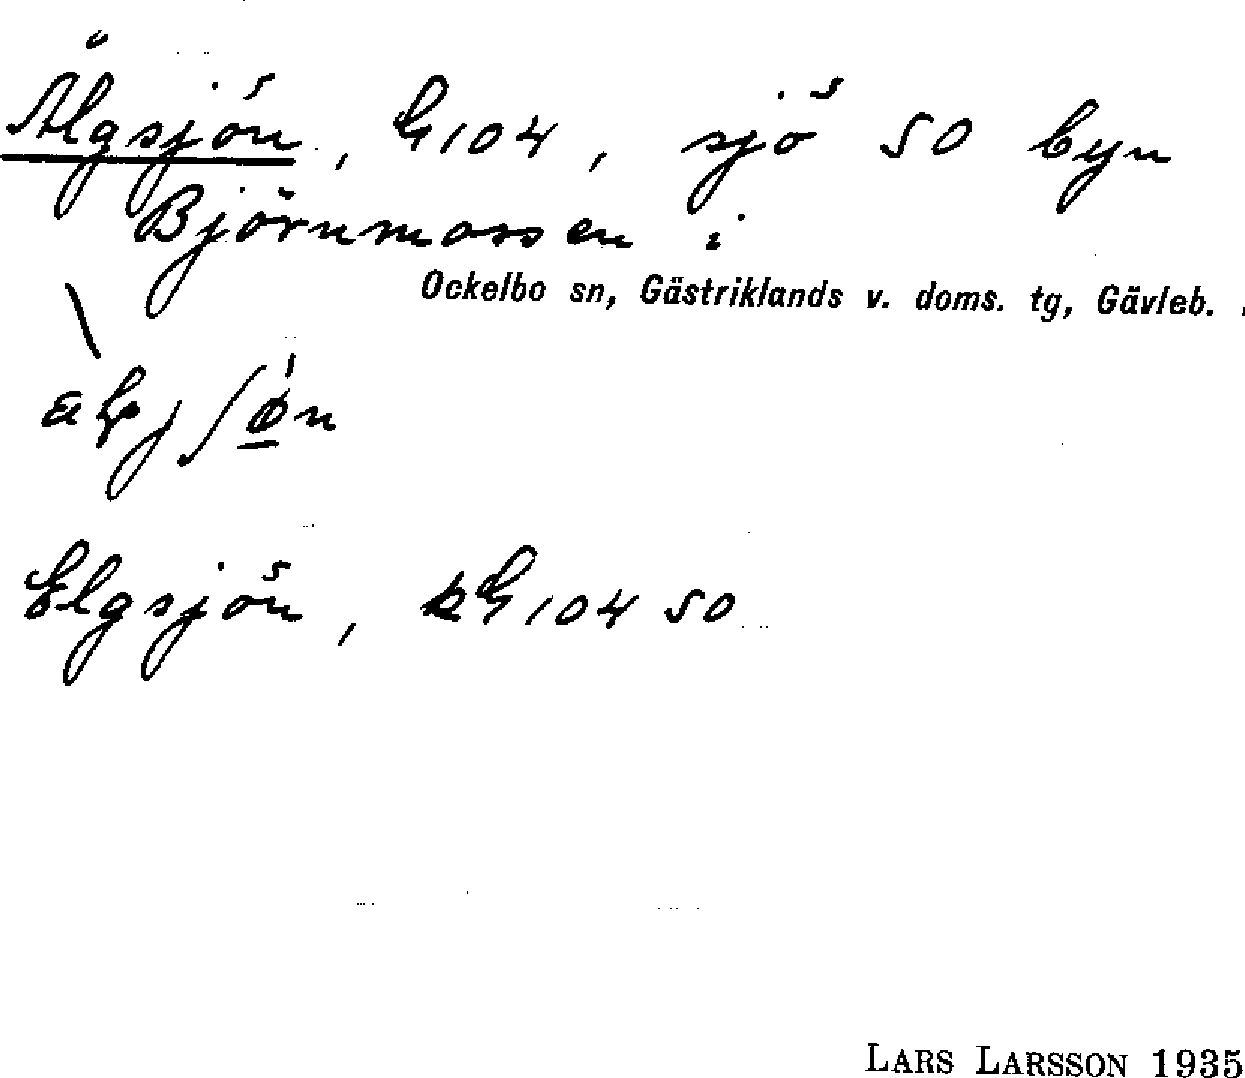 Älgsjön, G104, sjö SO byn
Björnmossen i
Ockelbo sn, Gästriklands v. doms. tg, Gävleb.
Elgsjön, kG104 SO
LARS LARSSON 1935